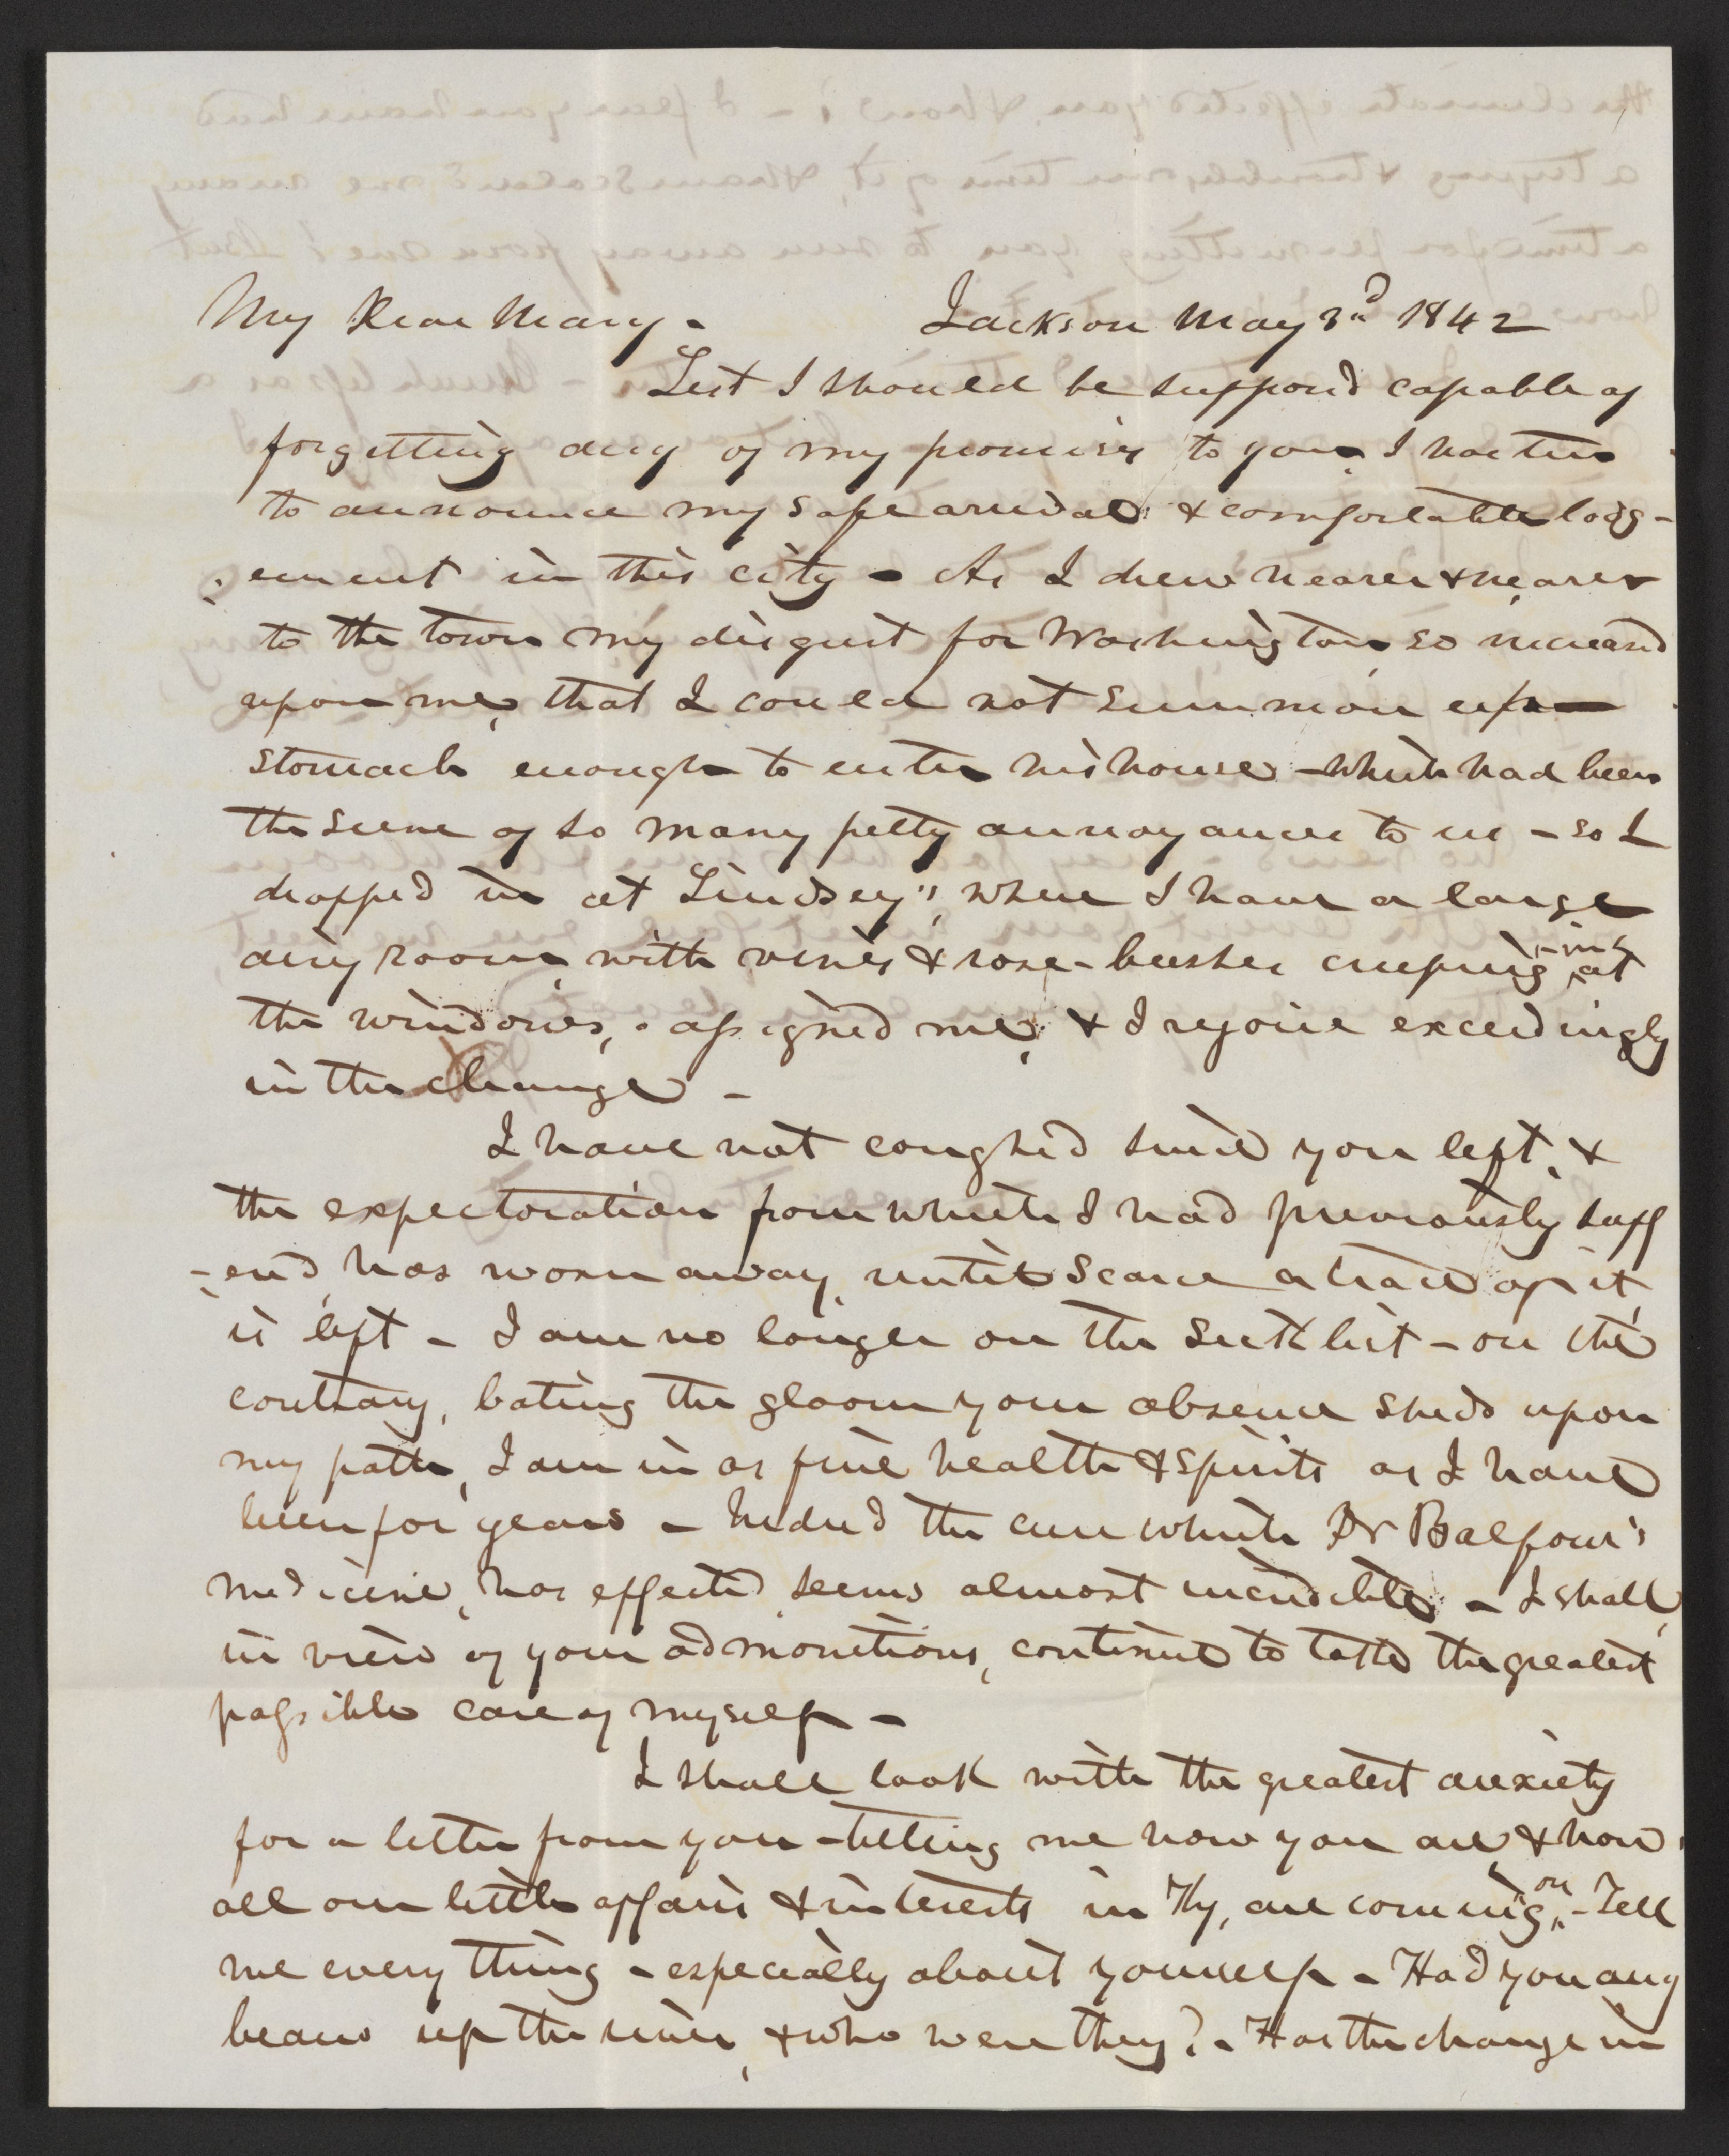 My Dear Mary - Jackson May 3d 1842
Lest I should be suppos'd capable of
forgetting any of my promises to you, I hasten
to announce my safe arrival & comfortable lodg-
-ement in this city - As I drew nearer & nearer
to the town my disgust for Washington, so increased
upon me, that I could not summon up
stomach enough to enter his house - which had been
the scene of so many petty annoyances to us - so I
dropped in at Lindsey's, where I have a large
airy room, with vines & rose-bushes creeping -in at
the windows, assigned me, & I rejoice exceedingly
in the change -
I have not coughed since you left, &
the expectoration from which I had previously suff
-er'd, has worn away, until scarce a trace of it
is left - I am no longer on the sick list - on the
contrary, bating the gloom your absence sheds upon
my path, I am in as fine health & spirits as I have
been for years - Indeed the cure which Dr Balfour's
medicine, has effected, seems almost incredible - I shall,
in view of your admonitions, continue to take the greatest
possible care of myself -
I shall look with the greatest anxiety
for a letter from you - telling me how you are & how
all our little affairs & interests in Ky, are coming on - Tell
me every thing - especially about yourself - Had you any
beaus up the river, & who were they? - Has the change in